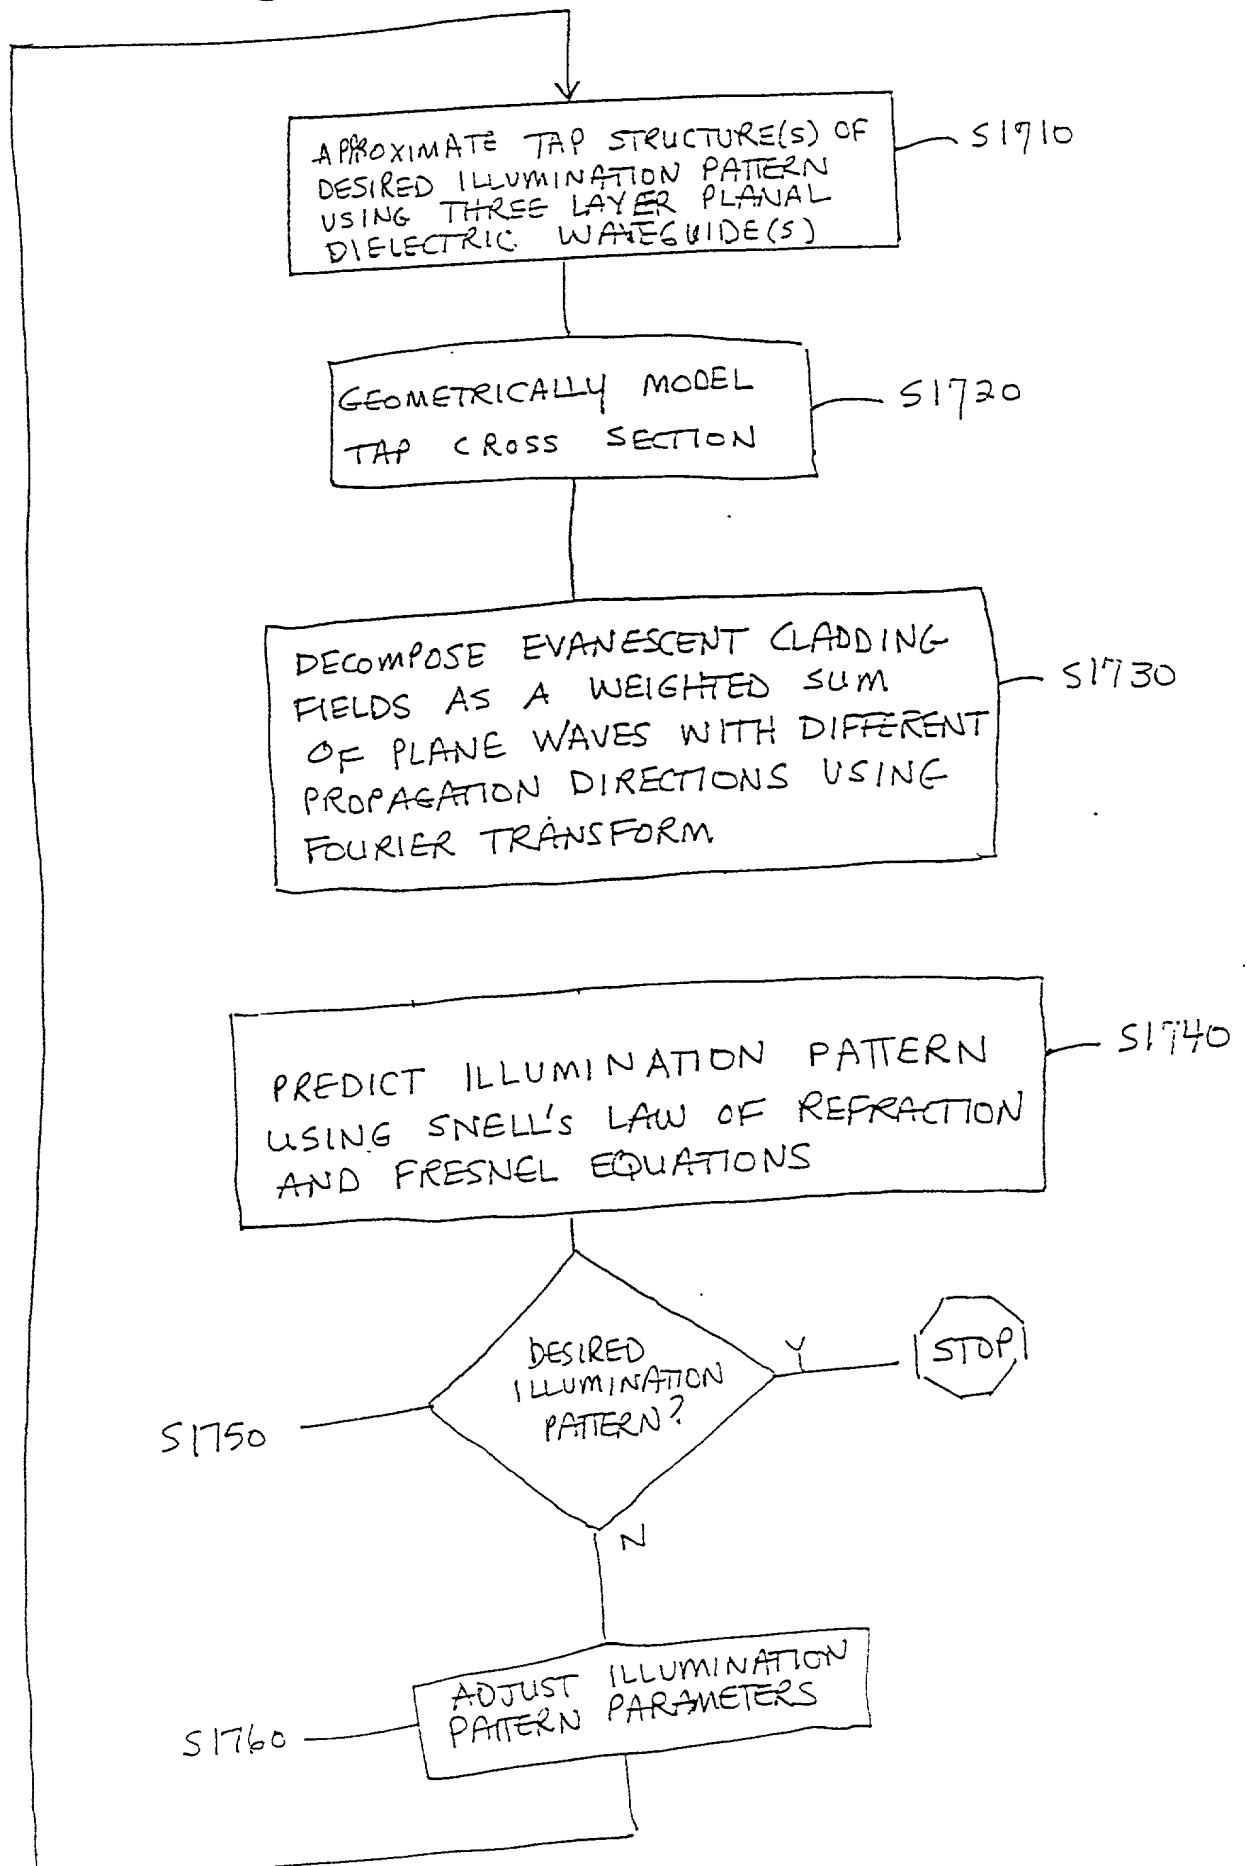 APPROXIMATE TAP STRUCTURE(S) OF
DESIRED ILLUMINATION PATTERN
USING THREE LAYER PLANAL
DIELECTRIC WAVEGUIDE(S)
S1710
GEOMETRICALLY MODEL
TAP CROSS SECTION
S1720
DECOMPOSE EVANESCENT CLADDING
FIELDS AS A WEIGHTED SUM
OF PLANE WAVES WITH DIFFERENT
PROPAGATION DIRECTIONS USING
FOURIER TRANSFORM
S1730
PREDICT ILLUMINATION PATTERN
USING SNELL'S LAW OF REFRACTION
AND FRESNEL EQUATIONS
S1740
DESIRED
ILLUMINATION
PATTERN?
Y
STOP
S1750
N
ADJUST ILLUMINATION
PATTERN PARAMETERS
S1760